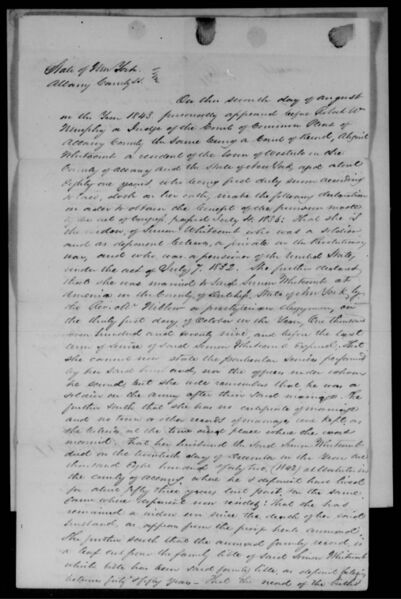 State of New York
Albany County ss.
On this seventh day of August
in the Year 1843 personally appeared before Robert
Murphy a Judge of the Court of Common Pleas of
Albany County the same being a Court of Record, Abigail
Whitcomb a resident of the Town of in the
County of Albany and the State of New York, aged about
Eighty one years who being first duly sworn according
to law, doth on her oath, make the following declaration
in order to obtain the benefit of the provision made
by the act of Congress passed July 4, 1836: That she is
the widow of Simon Whitcomb who was a soldier
and as deponent believes, a private in the Revolutionary
war, and who was a pensioner of the United States,
under the act of July 7. 1832. She further declares,
that she was married to Said Simon Whitcomb at
America in the County of Dutchess, State of New York, by
the Rev. a presbyterian Clergyman, on
the thirty first day of October in the Year, One thousand
seven hundred and and before the last
term of service of said Simon Whitcomb expired. That
she cannot now state the particular service performed
by her said husband, nor the officers under whom
he served, but she well remembers that he was a
soldier in the Army after their said marriage. She
further saith that she has no certificate of marriage
and no town or other records of marriage were kept, as
she believes, at the time and place where she was
married. That her husband the said Simon Whitcomb
died on the twentieth day of December in the Year One
thousand Eight hundred & forty two (1842) at in
the County of Albany, where he & deponent have lived
for about fifty three years last past, on the same
farm where deponent now resides; that she has
remained a widow ever since the death of her said
husband, as appears from the proof hereto annexed,
She further saith that the annexed family record is
a leaf out from the family bible of said Simon Whitcomb
which bible has been said family bible, as deponent
between forty & fifty years - That the record of the births